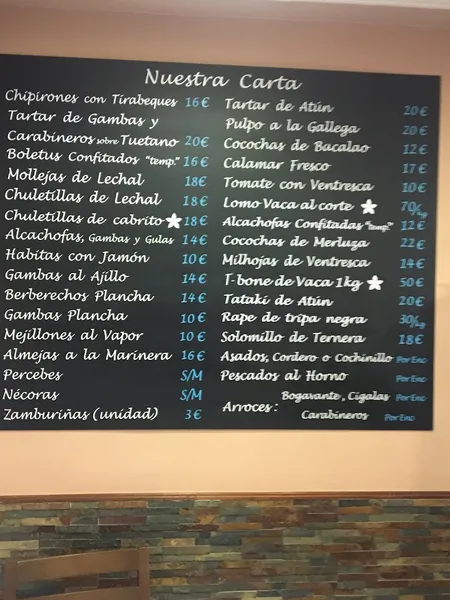 Nuestra Carta
Chipirones con Tirabeques 16€
Tartar de Gambas y
Carabineros sobre Tuetano 20€
Boletus Confitados "temp." 16€
Mollejas de Lechal 18€
Chuletillas de Lechal 18€
Chuletillas de cabrito 18€
Alcachofas, Gambas y Gulas 14€
Habitas con Jamón 10€
Gambas al Ajillo 14€
Berberechos Plancha 14€
Gambas Plancha 10€
Mejillones al Vapor 10€
Almejas a la Marinera 16€
Percebes S/M
Nécoras S/M
Zamburiñas (unidad) 3€
Tartar de Atún 20€
Pulpo a la Gallega 20€
Cocochas de Bacalao 12€
Calamar Fresco 17€
Tomate con Ventresca 10€
Lomo Vaca al corte 70/kg
Alcachofas Confitadas "temp." 12€
Cocochas de Merluza 22€
Milhojas de Ventresca 14€
T-bone de Vaca 1kg 50€
Tataki de Atún 20€
Rape de tripa negra 30/kg
Solomillo de Ternera 18€
Asados, Cordero o Cochinillo Por Enc
Pescados al Horno Por Enc
Arroces: Bogavante, Cigalas Por Enc
Carabineros Por Enc